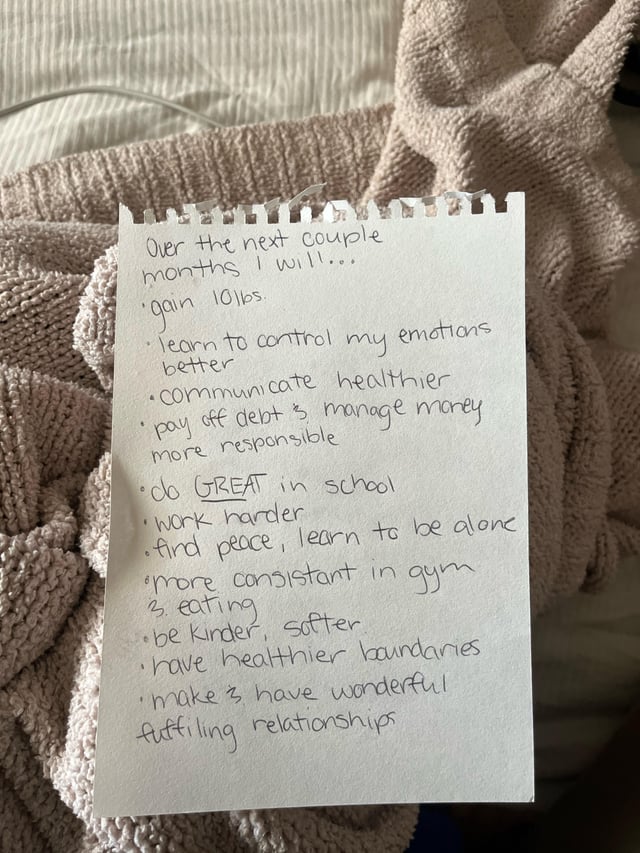 Over the next couple
months I will...
• gain 10lbs.
• learn to control my emotions
better
• communicate healthier
• pay off debt & manage money
more responsible
• do GREAT in school
• work harder
• find peace, learn to be alone
• more consistant in gym
& eating
• be kinder, softer
• have healthier boundaries
• make & have wonderful
fuffiling relationships